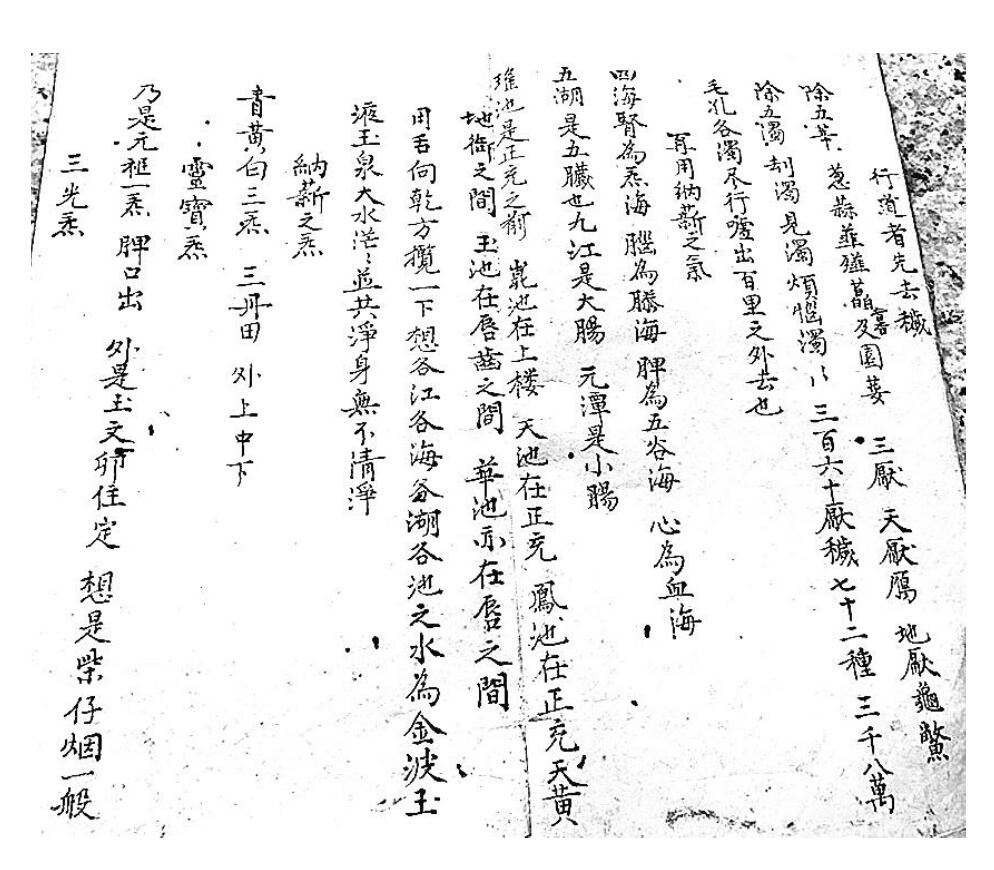 行道者先去穢 三厭 天厭鴈 地厭龜鱉
除五葷 蔥蒜韮薤藠蒿及園荽 三百六十厭穢七十二種 三千八萬
除五濁 刼濁見濁煩惱濁
毛孔各濁尽行噓出百里之外去也
再用納薪之氣
四海腎為炁海 腦為滕海 脾為五谷海 心為血海
五湖是五臟也九江是大腸 元潭是小腸
池是正充之前 崑池在上楼 天池在正充 鳳池在正充天黃
地衖之間 玉池在唇齒之間 華池亦在唇之間
用毛向乾方攬一下想各江各海各湖各池之水為金波玉
液玉泉大水茫〻並共淨身無不清淨
納薪之炁
青黃白三炁 三丹田 外上中下
靈寶炁
乃是元祖一炁 脾口出 外是玉文卯住定 想是柴仔烟一般
三光炁